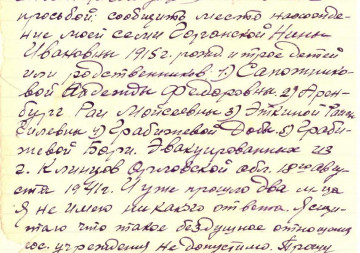 просьбой: сообщить место нахожде-
ние моей семьи Нины
Ивановны 1915 г. рожд. и трое детей
или родственников. 1) Сапожнико-
вой Надежды Федоровны. 2) Арон-
бург Раи Моисеевны 3) Эткиной
4) 5)
Бори. Эвакуированных из
г. Клинцов Орловской обл. авгу-
ста 1941 г. И уже прошло два м-ца
я не имею никакого ответа. Я счи-
таю что такое бездушное отношение
учреждения не допустимо. Прошу